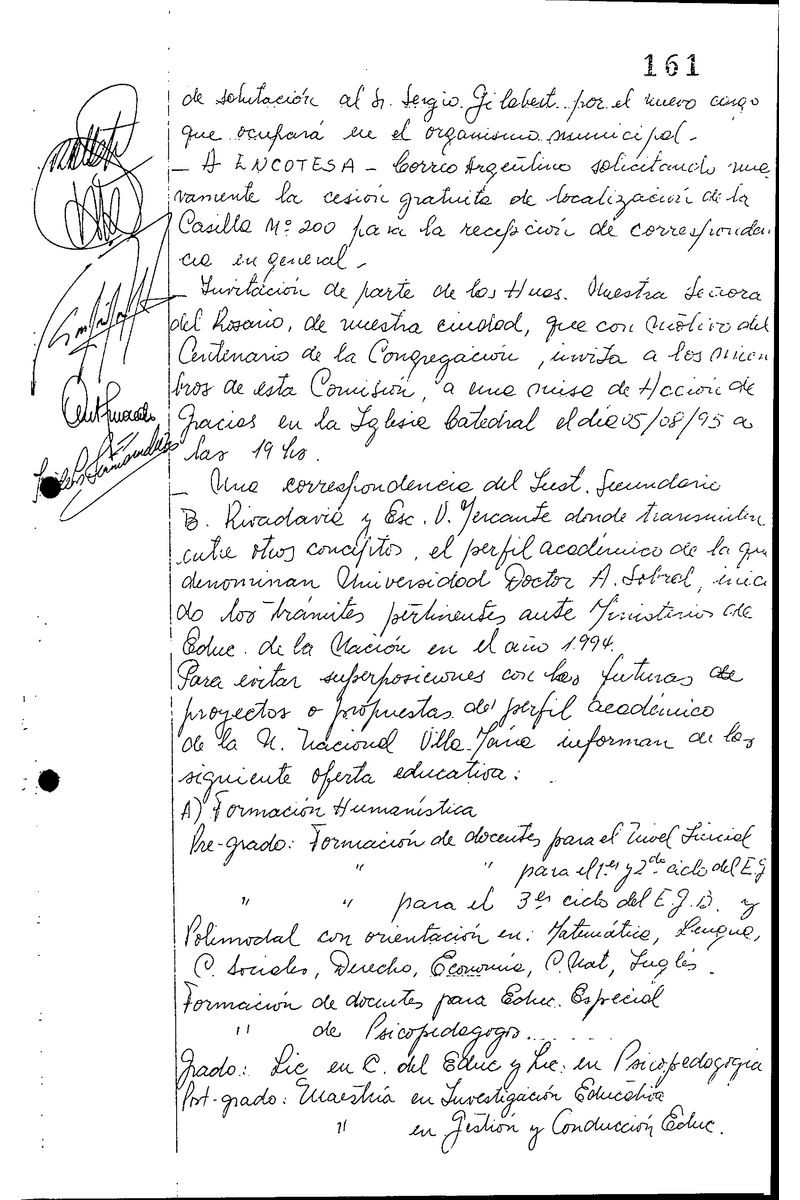 161
de salutación al Sr. Sergio Gilabert por el nuevo cargo
que ocupará en el organismo municipal.-
_ A ENCOTESA - Correo Argentino solicitando nue
vamente la cesión gratuita de localización de la
Casilla Nº 200 para la recepción de corresponden
cia en general.-
_ Invitación de parte de las Hnas. Nuestra Señora
del Rosario, de nuestra ciudad, que con motivo del
Centenario de la Congregación, invita a los miem
bros de esta Comisión, a una misa de Acción de
Gracias en la Iglesia Catedral el día 05/08/95 a
las 19 hs.
_ Una correspondencia del Inst. Secundario
B. Rivadavia y Esc. V. Mercante donde transmiten
entre otros conceptos, el perfil académico de la que
denominan Universidad Doctor A. Sobral, inicia
do los trámites pertinentes ante Ministerio de
Educ. de la Nación en el año 1.994.
Para evitar superposiciones con las futuras de
proyectos o propuestas del perfil académico
de la U. Nacional Villa María informan de las
siguiente oferta educativa:
A) Formación Humanística
Pre-grado: Formación de docentes para el Nivel Inicial
" " para el 1er y 2do ciclo del E.G
" " para el 3er ciclo del E.G.B. y
Polimodal con orientación en: Matemática, Lengua,
C. Sociales, Derecho, Economía, C. Nat, Inglés.
Formación de docentes para Educ. Especial
" de Psicopedagogos......
Grado: Lic en C. del Educ y Lic. en Psicopedagogia
Post-grado: Maestría en Investigación Educativa
" en Gestión y Conducción Educ.